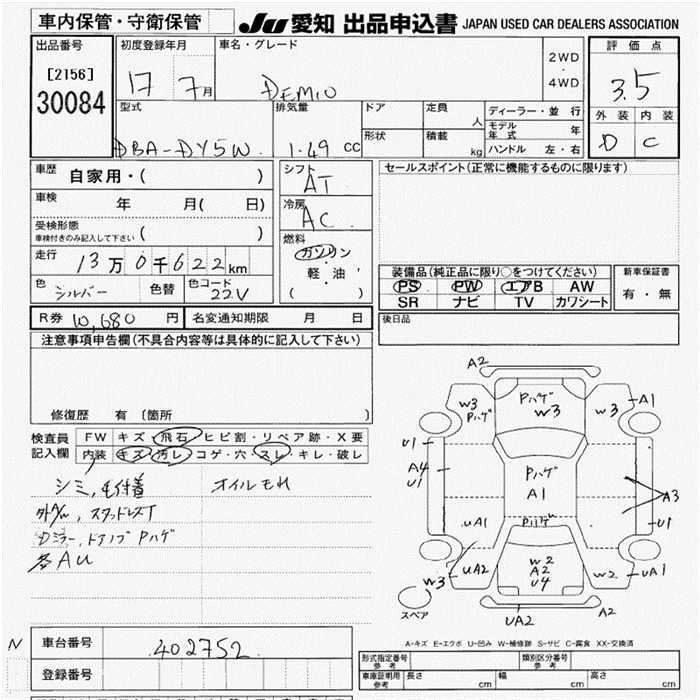 車内保管・守衛保管
JU 愛知 出品申込書 JAPAN USED CAR DEALERS ASSOCIATION
出品番号 [2156] 30084
初度登録年月 17 7月
車名・グレード DEMIO
2WD・4WD
評価点 3.5
外装 内装
D C
型式 DBA-DY5W
排気量 1.49 cc
ドア
形状
定員 人
積載 kg
ディーラー・並行
モデル年式 年
ハンドル 左・右
車歴 自家用・( )
車検 年 月( 日)
受検形態
車検付きのみ記入して下さい ( )
走行 13万0千622km
色 シルバー 色替 色コード 22V
シフト AT
冷房 AC
燃料
ガソリン
・軽・油
( )
セールスポイント(正常に機能するものに限ります)
装備品(純正品に限り○をつけてください)
PS PW エアB AW
SR ナビ TV カワシート
新車保証書
有・無
後日品
R券 10,680 円 名変通知期限 月 日
注意事項申告欄(不具合内容等は具体的に記入して下さい)
修復歴 有 〔箇所 〕
検査員記入欄
FW キズ・飛石・ヒビ割・リペア跡・X要
内装 キズ・汚レ・コゲ・穴・スレ・キレ・破レ
シミ,毛付着 オイルもれ
スタッドレスT
Dミラー,ドアノブ Pハゲ
多AU
A2
W3 Pハゲ
Pハゲ W3
W3
A1
U1
A4
U1
Pハゲ
A1
A3
UA1
Pハゲ
U1
W3
UA2
W2
A2
U4
W2
UA1
スペア
UA2
A2
A-キズ E-エクボ U-凹み W-補修跡 S-サビ C-腐食 XX-交換済
N
車台番号 402752
登録番号
形式指定番号 参考
類別区分番号 参考
車庫証明用 参考 長さ cm 幅 cm 高さ cm